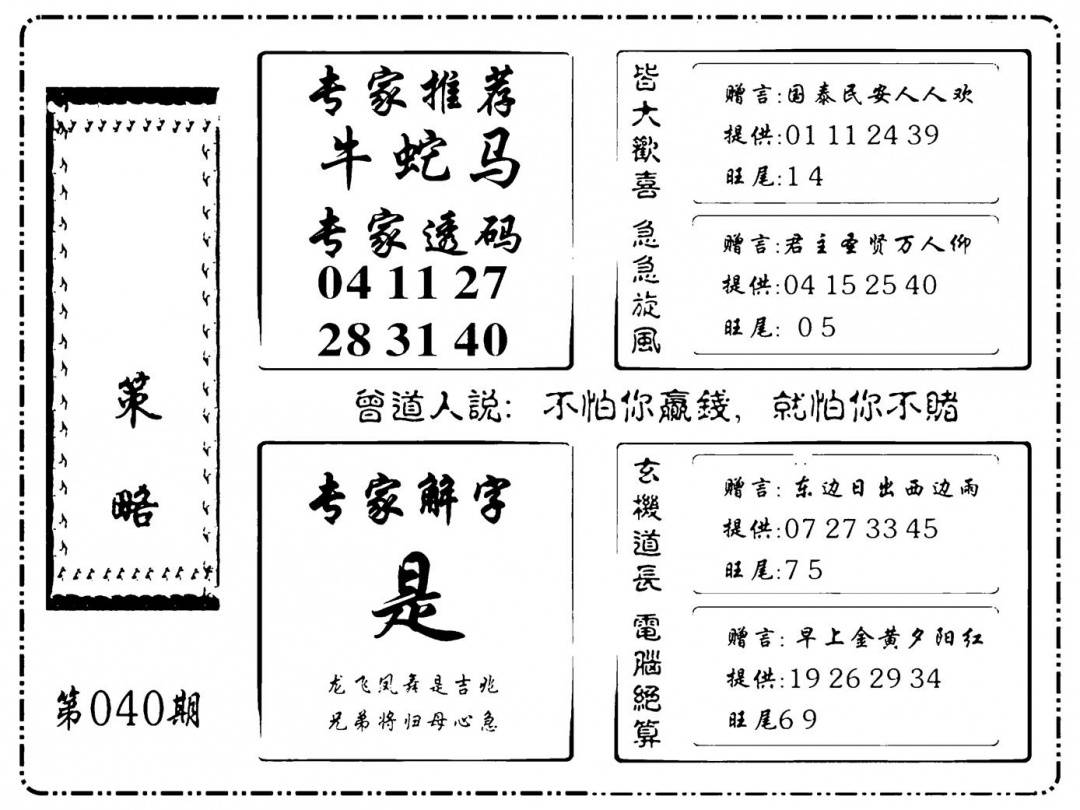 策略
第040期
专家推荐
牛蛇马
专家透码
04 11 27
28 31 40
皆大歡喜
赠言:国泰民安人人欢
提供:01 11 24 39
旺尾:1 4
急急旋風
赠言:君主圣贤万人仰
提供:04 15 25 40
旺尾: 0 5
曾道人説: 不怕你贏錢, 就怕你不賭
专家解字
是
龙飞凤舞是吉兆
兄弟将归母心急
玄機道長
赠言: 东边日出西边雨
提供:07 27 33 45
旺尾:7 5
電腦絕算
赠言: 早上金黄夕阳红
提供:19 26 29 34
旺尾6 9